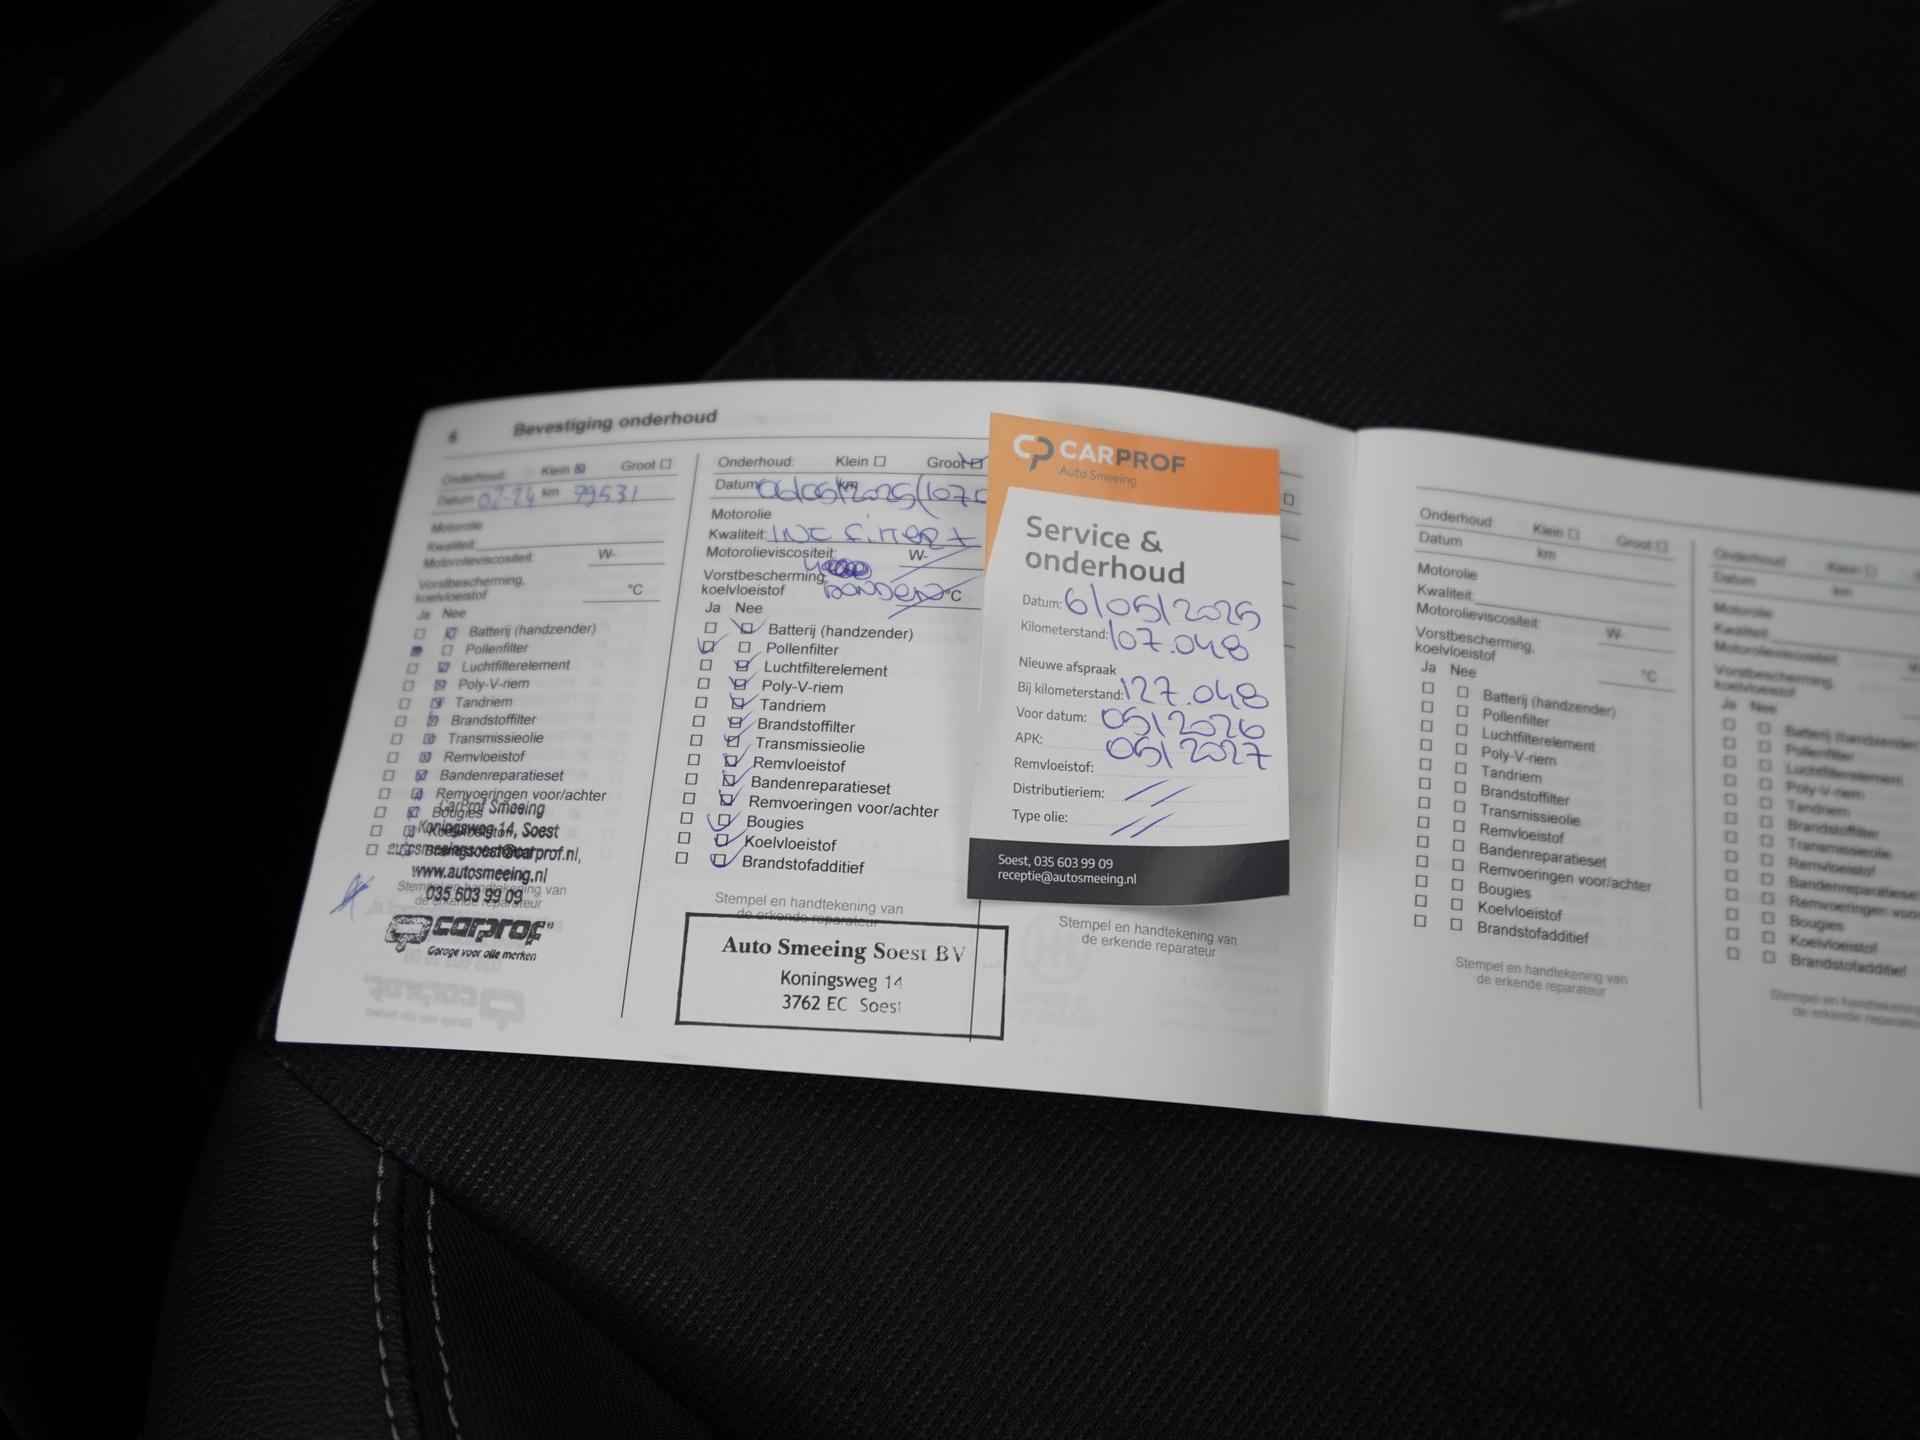 6 Bevestiging onderhoud
Onderhoud: Klein ☒ Groot ☐
Datum 02-24 km 99531
Motorolie
Kwaliteit:
Motorolieviscositeit: W-
Vorstbescherming,
koelvloeistof °C
Ja Nee
Batterij (handzender)
Pollenfilter
Luchtfilterelement
Poly-V-riem
Tandriem
Brandstoffilter
Transmissieolie
Remvloeistof
Bandenreparatieset
Remvoeringen voor/achter
Bougies
CarProf Smeeing
Koningsweg 14, Soest
autosmeeingsoest@carprof.nl,
www.autosmeeing.nl
Stempel en handtekening van
035 603 99 09
de erkende reparateur
carprof
Garage voor alle merken
Onderhoud: Klein ☐ Groot
Datum 06/05/2025 (107.0
km
Motorolie
Kwaliteit:
Motorolieviscositeit: W-
Vorstbescherming,
koelvloeistof banden °C
Ja Nee
Batterij (handzender)
Pollenfilter
Luchtfilterelement
Poly-V-riem
Tandriem
Brandstoffilter
Transmissieolie
Remvloeistof
Bandenreparatieset
Remvoeringen voor/achter
Bougies
Koelvloeistof
Brandstofadditief
Stempel en handtekening van
de erkende reparateur
Auto Smeeing Soest BV
Koningsweg 14
3762 EC Soest
CP CARPROF
Auto Smeeing
Service &
onderhoud
Datum: 6/05/2025
Kilometerstand: 107.048
Nieuwe afspraak
Bij kilometerstand: 127.048
Voor datum: 05/2026
APK: 05/2027
Remvloeistof:
Distributieriem: //
Type olie: //
Soest, 035 603 99 09
receptie@autosmeeing.nl
Stempel en handtekening van
de erkende reparateur
Onderhoud: Klein ☐ Groot ☐
Datum km
Motorolie
Kwaliteit:
Motorolieviscositeit: W-
Vorstbescherming,
koelvloeistof °C
Ja Nee
Batterij (handzender)
Pollenfilter
Luchtfilterelement
Poly-V-riem
Tandriem
Brandstoffilter
Transmissieolie
Remvloeistof
Bandenreparatieset
Remvoeringen voor/achter
Bougies
Koelvloeistof
Brandstofadditief
Stempel en handtekening van
de erkende reparateur
Onderhoud: Klein ☐
Datum km
Motorolie
Kwaliteit:
Motorolieviscositeit:
Vorstbescherming,
koelvloeistof
Ja Nee
Batterij (handzender)
Pollenfilter
Luchtfilterelement
Poly-V-riem
Tandriem
Brandstoffilter
Transmissieolie
Remvloeistof
Bandenreparatieset
Remvoeringen
Bougies
Koelvloeistof
Brandstofadditief
Stempel en handtekening
de erkende